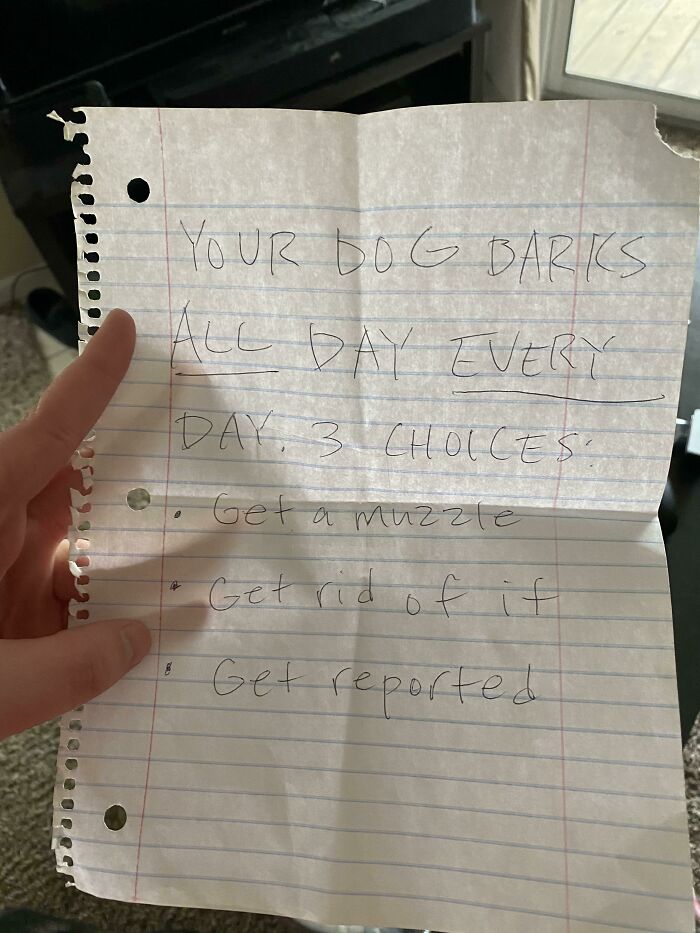 YOUR DOG BARKS
ALL DAY EVERY
DAY. 3 CHOICES:
• Get a muzzle
• Get rid of it
• Get reported